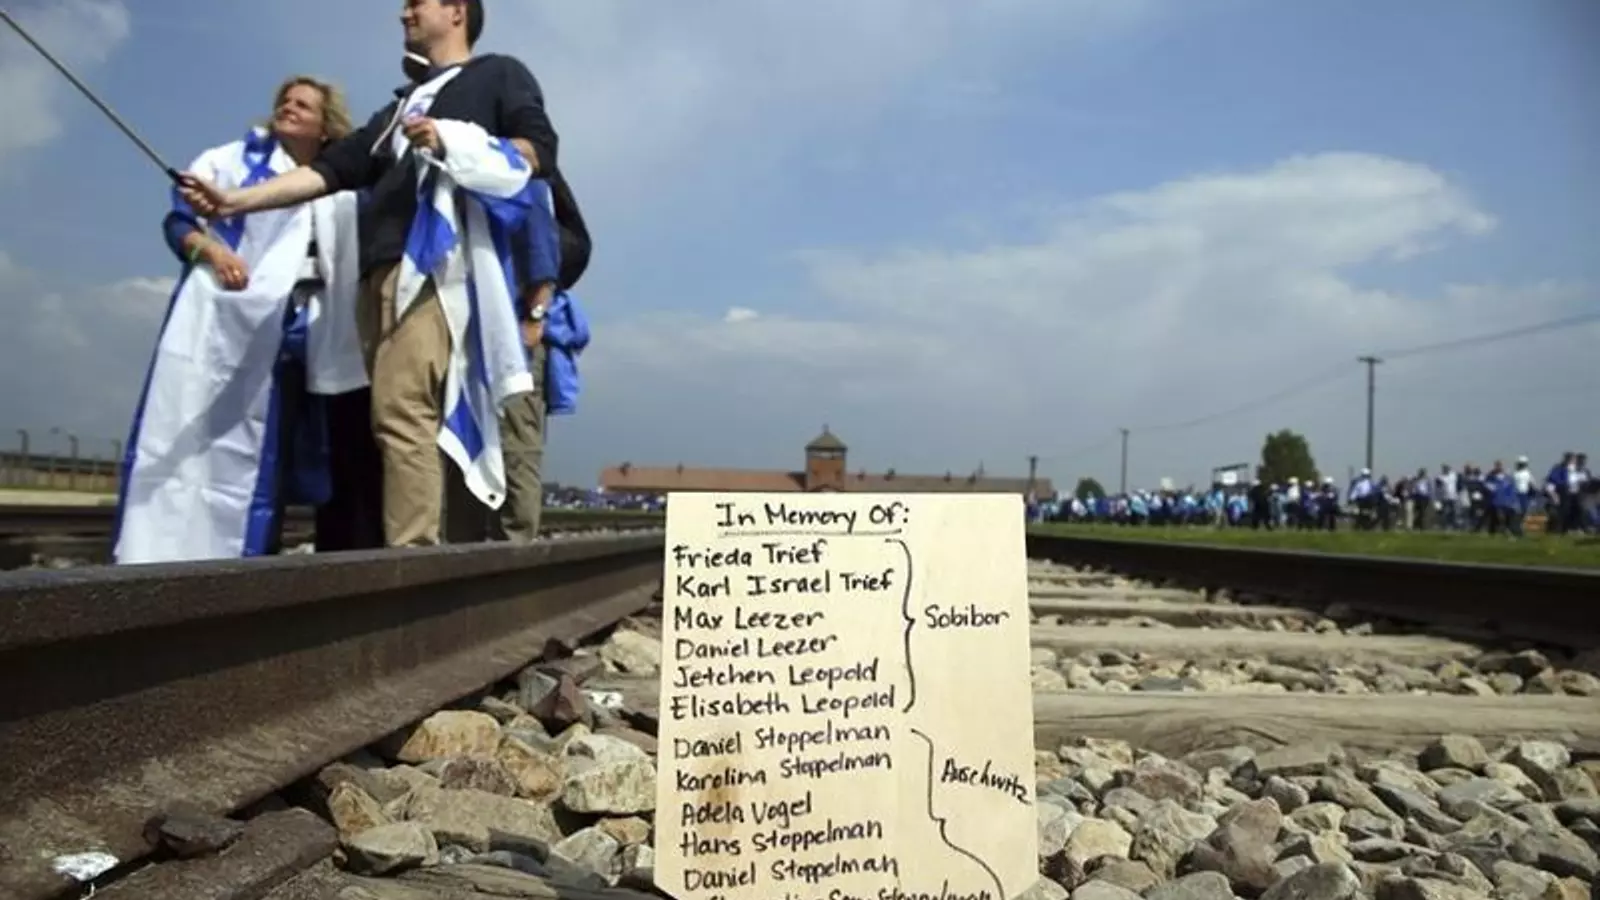 In Memory Of:
Frieda Trief
Karl Israel Trief
Max Leezer
Daniel Leezer
Jetchen Leopold
Elisabeth Leopold
Sobibor
Daniel Stoppelman
Karolina Stoppelman
Adela Vogel
Hans Stoppelman
Daniel Stoppelman
Stoppelman
Auschwitz